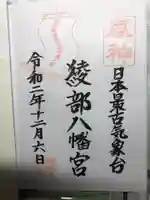 日本最古気象台
綾部八幡宮
令和二年十二月六日